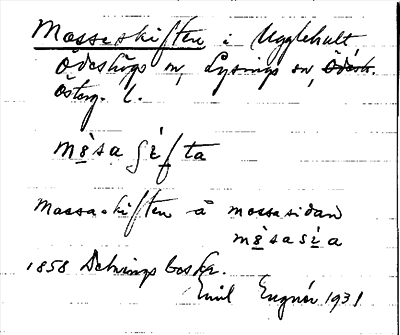 Mossaskiften i Ugglehult,
Ödeshögs sn, Lysings hd,
Österg. l.
mo̱`sa ʃi̱`fta
Mossaskiften å mossasidan
mo̱`sasi̱`a
1858 Delnings boska.
Emil Engnér 1931